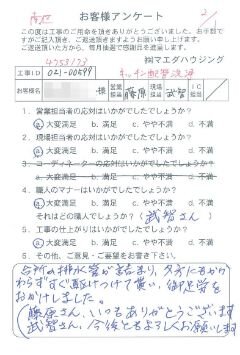 お客様アンケート
この度は工事のご用命を頂きありがとうございました。お手数で
すがご記入頂き、ご返送頂きますようお願い申し上げます。
ご返送頂いた方から、毎月抽選で感謝品を進呈します。
㈱マエダハウジング
4753173
工事ID 021-00599 キッチン配管洗浄
お客様名 様 営業担当 藤原 現場担当 武智
1. 営業担当者の応対はいかがでしたでしょうか?
a. 大変満足 b. 満足 c. やや不満 d. 不満
2. 現場担当者の応対はいかがでしたでしょうか?
a. 大変満足 b. 満足 c. やや不満 d. 不満
3. コーディネーターの応対はいかがでしたでしょうか?
a. 大変満足 b. 満足 c. やや不満 d. 不満
4. 職人のマナーはいかがでしたでしょうか?
a. 大変満足 b. 満足 c. やや不満 d. 不満
それはどの職人でしょうか? (武智さん)
5. 工事の仕上がりはいかがでしたでしょうか?
a. 大変満足 b. 満足 c. やや不満 d. 不満
6. その他、ご意見・ご要望をお書き下さい。
台所の排水管が詰まり、夕方にもかか
わらずすぐ駆けつけて貰い、御足労を
おかけしました。
藤原さん、いつもありがとうございます
武智さん、今後ともよろしくお願いします